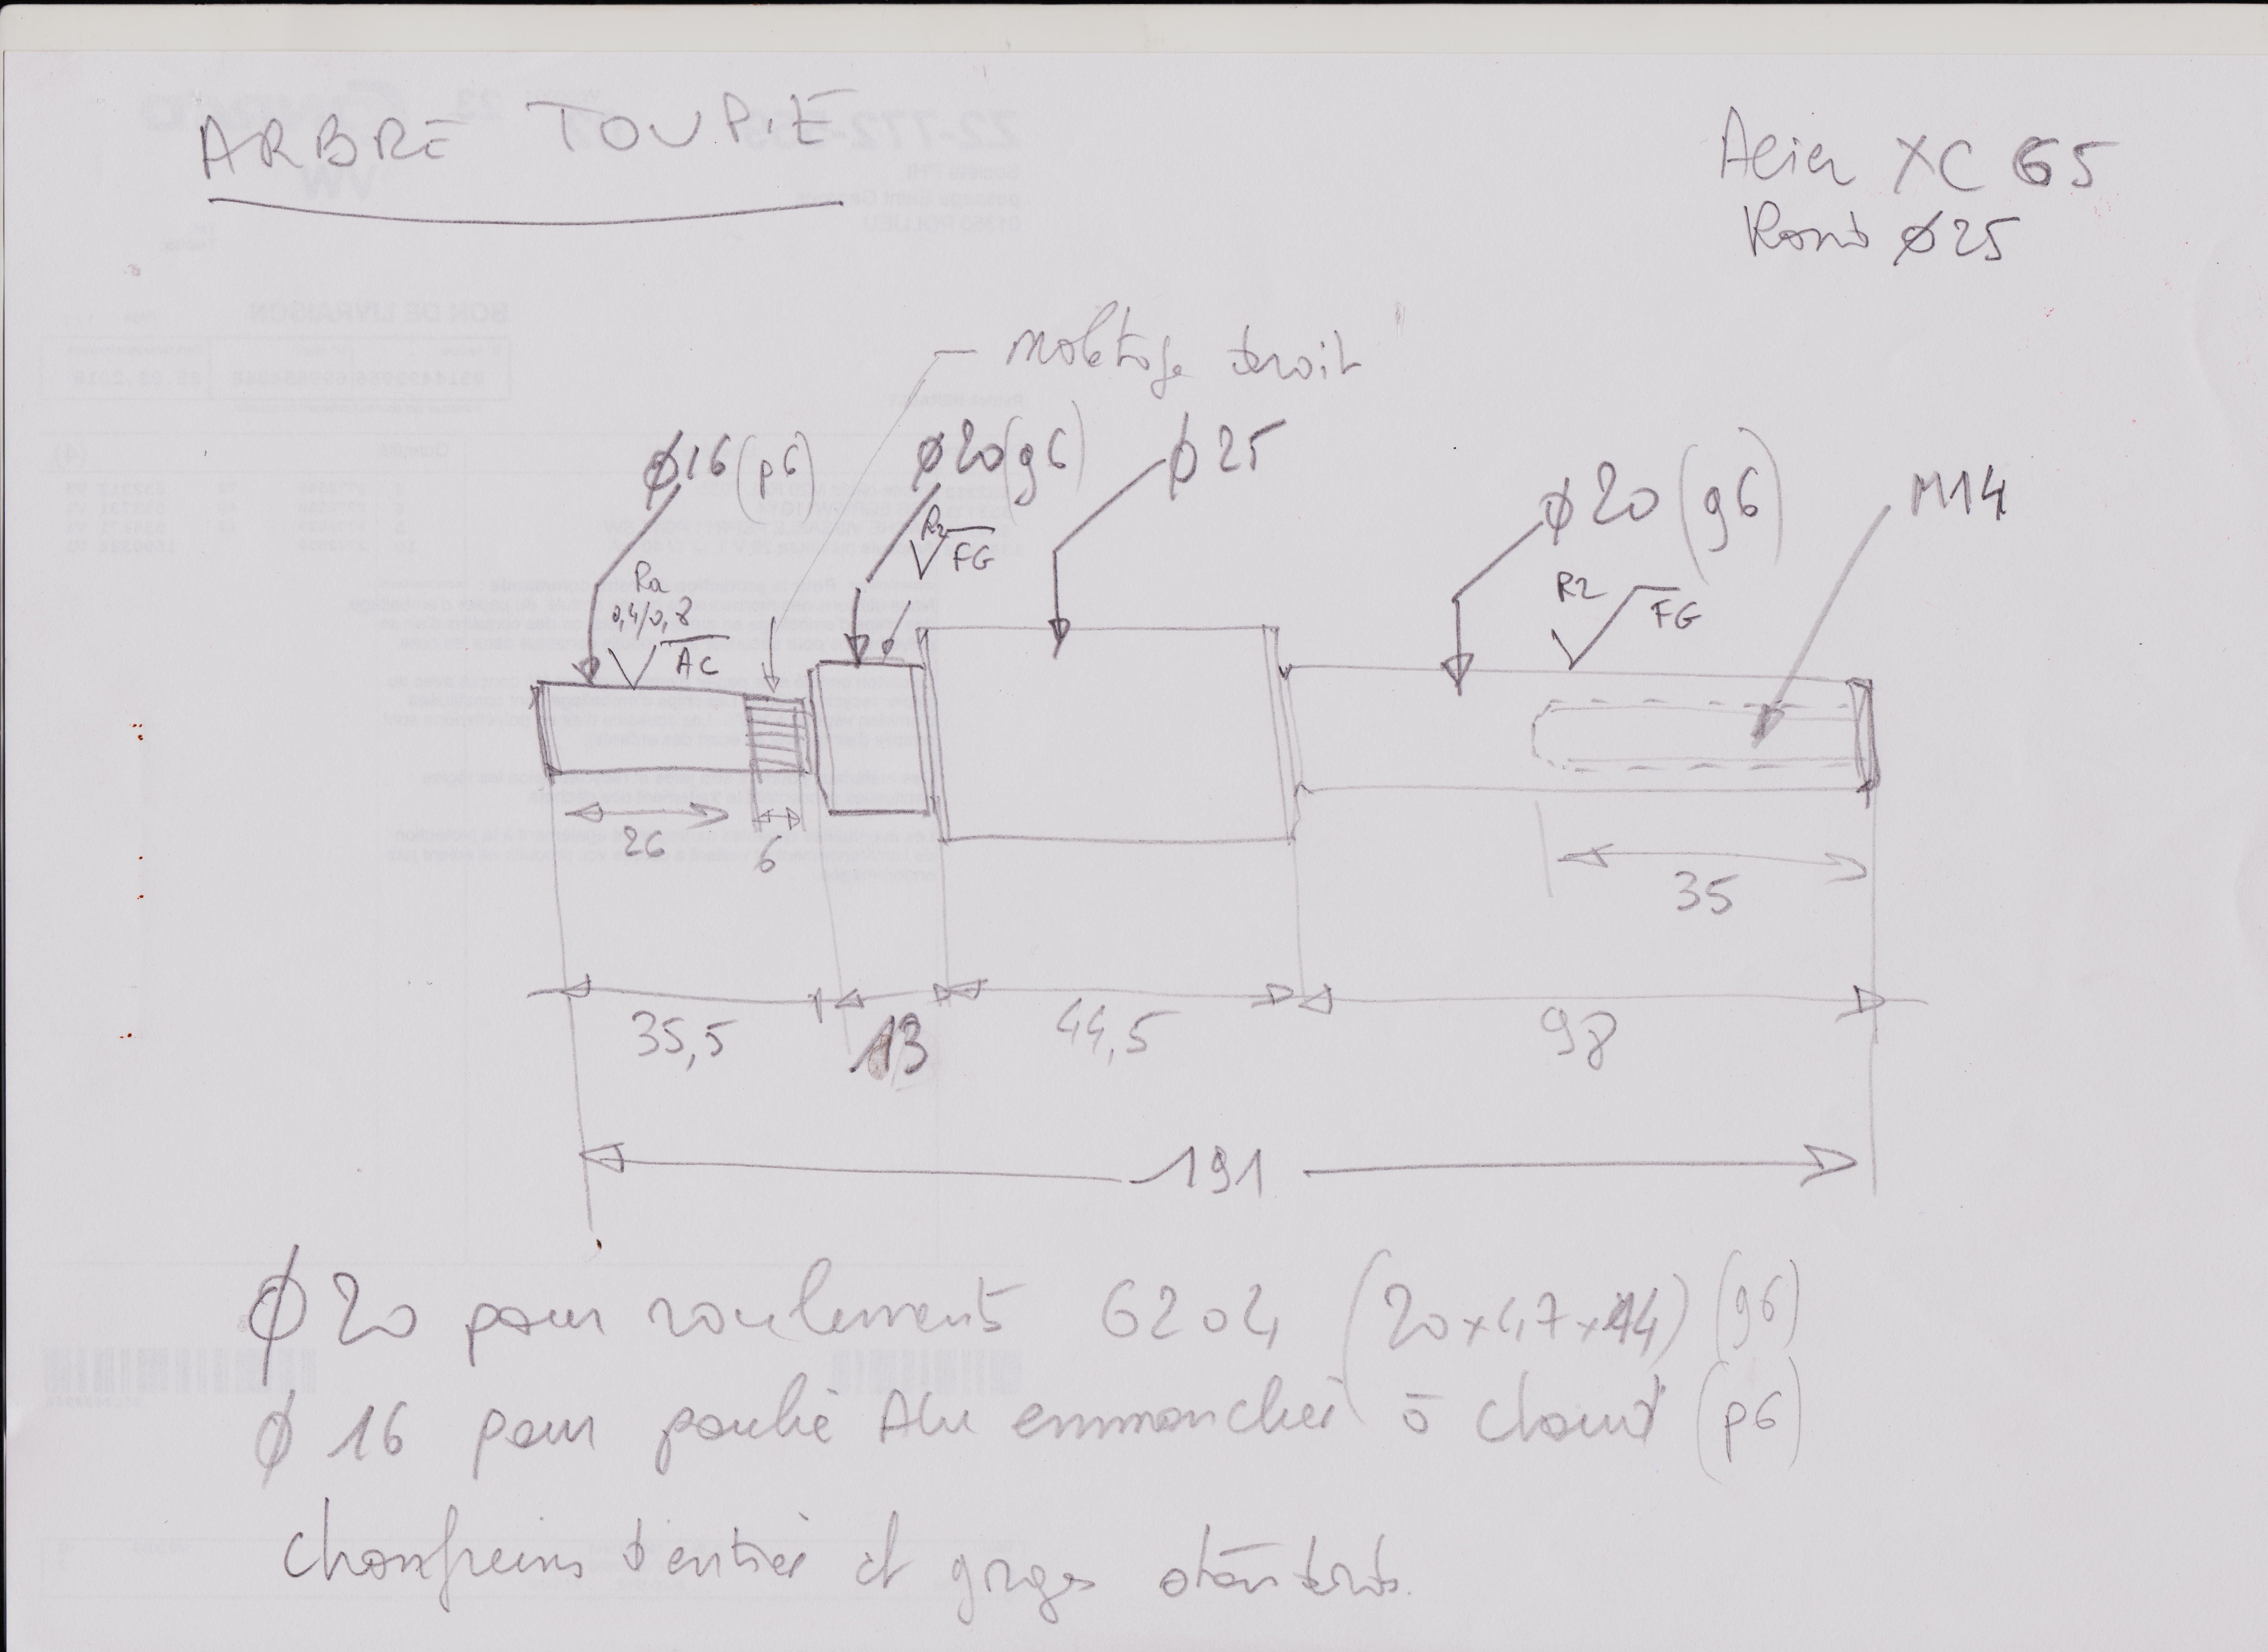 ARBRE TOUPIE
Acier XC 65
Rond ø25
moletage droit
ø16 (p6)
ø20 (g6)
ø25
ø20 (g6)
M14
Ra
0,4/0,8
AC
R2
FG
R2
FG
26
6
35
35,5
13
44,5
98
191
ø20 pour roulements 6204 (20x47x14) (g6)
ø 16 pour poulie Alu emmanchée à chaud (p6)
Chanfreins d'entrée et gorges standards.
BON DE LIVRAISON
VW